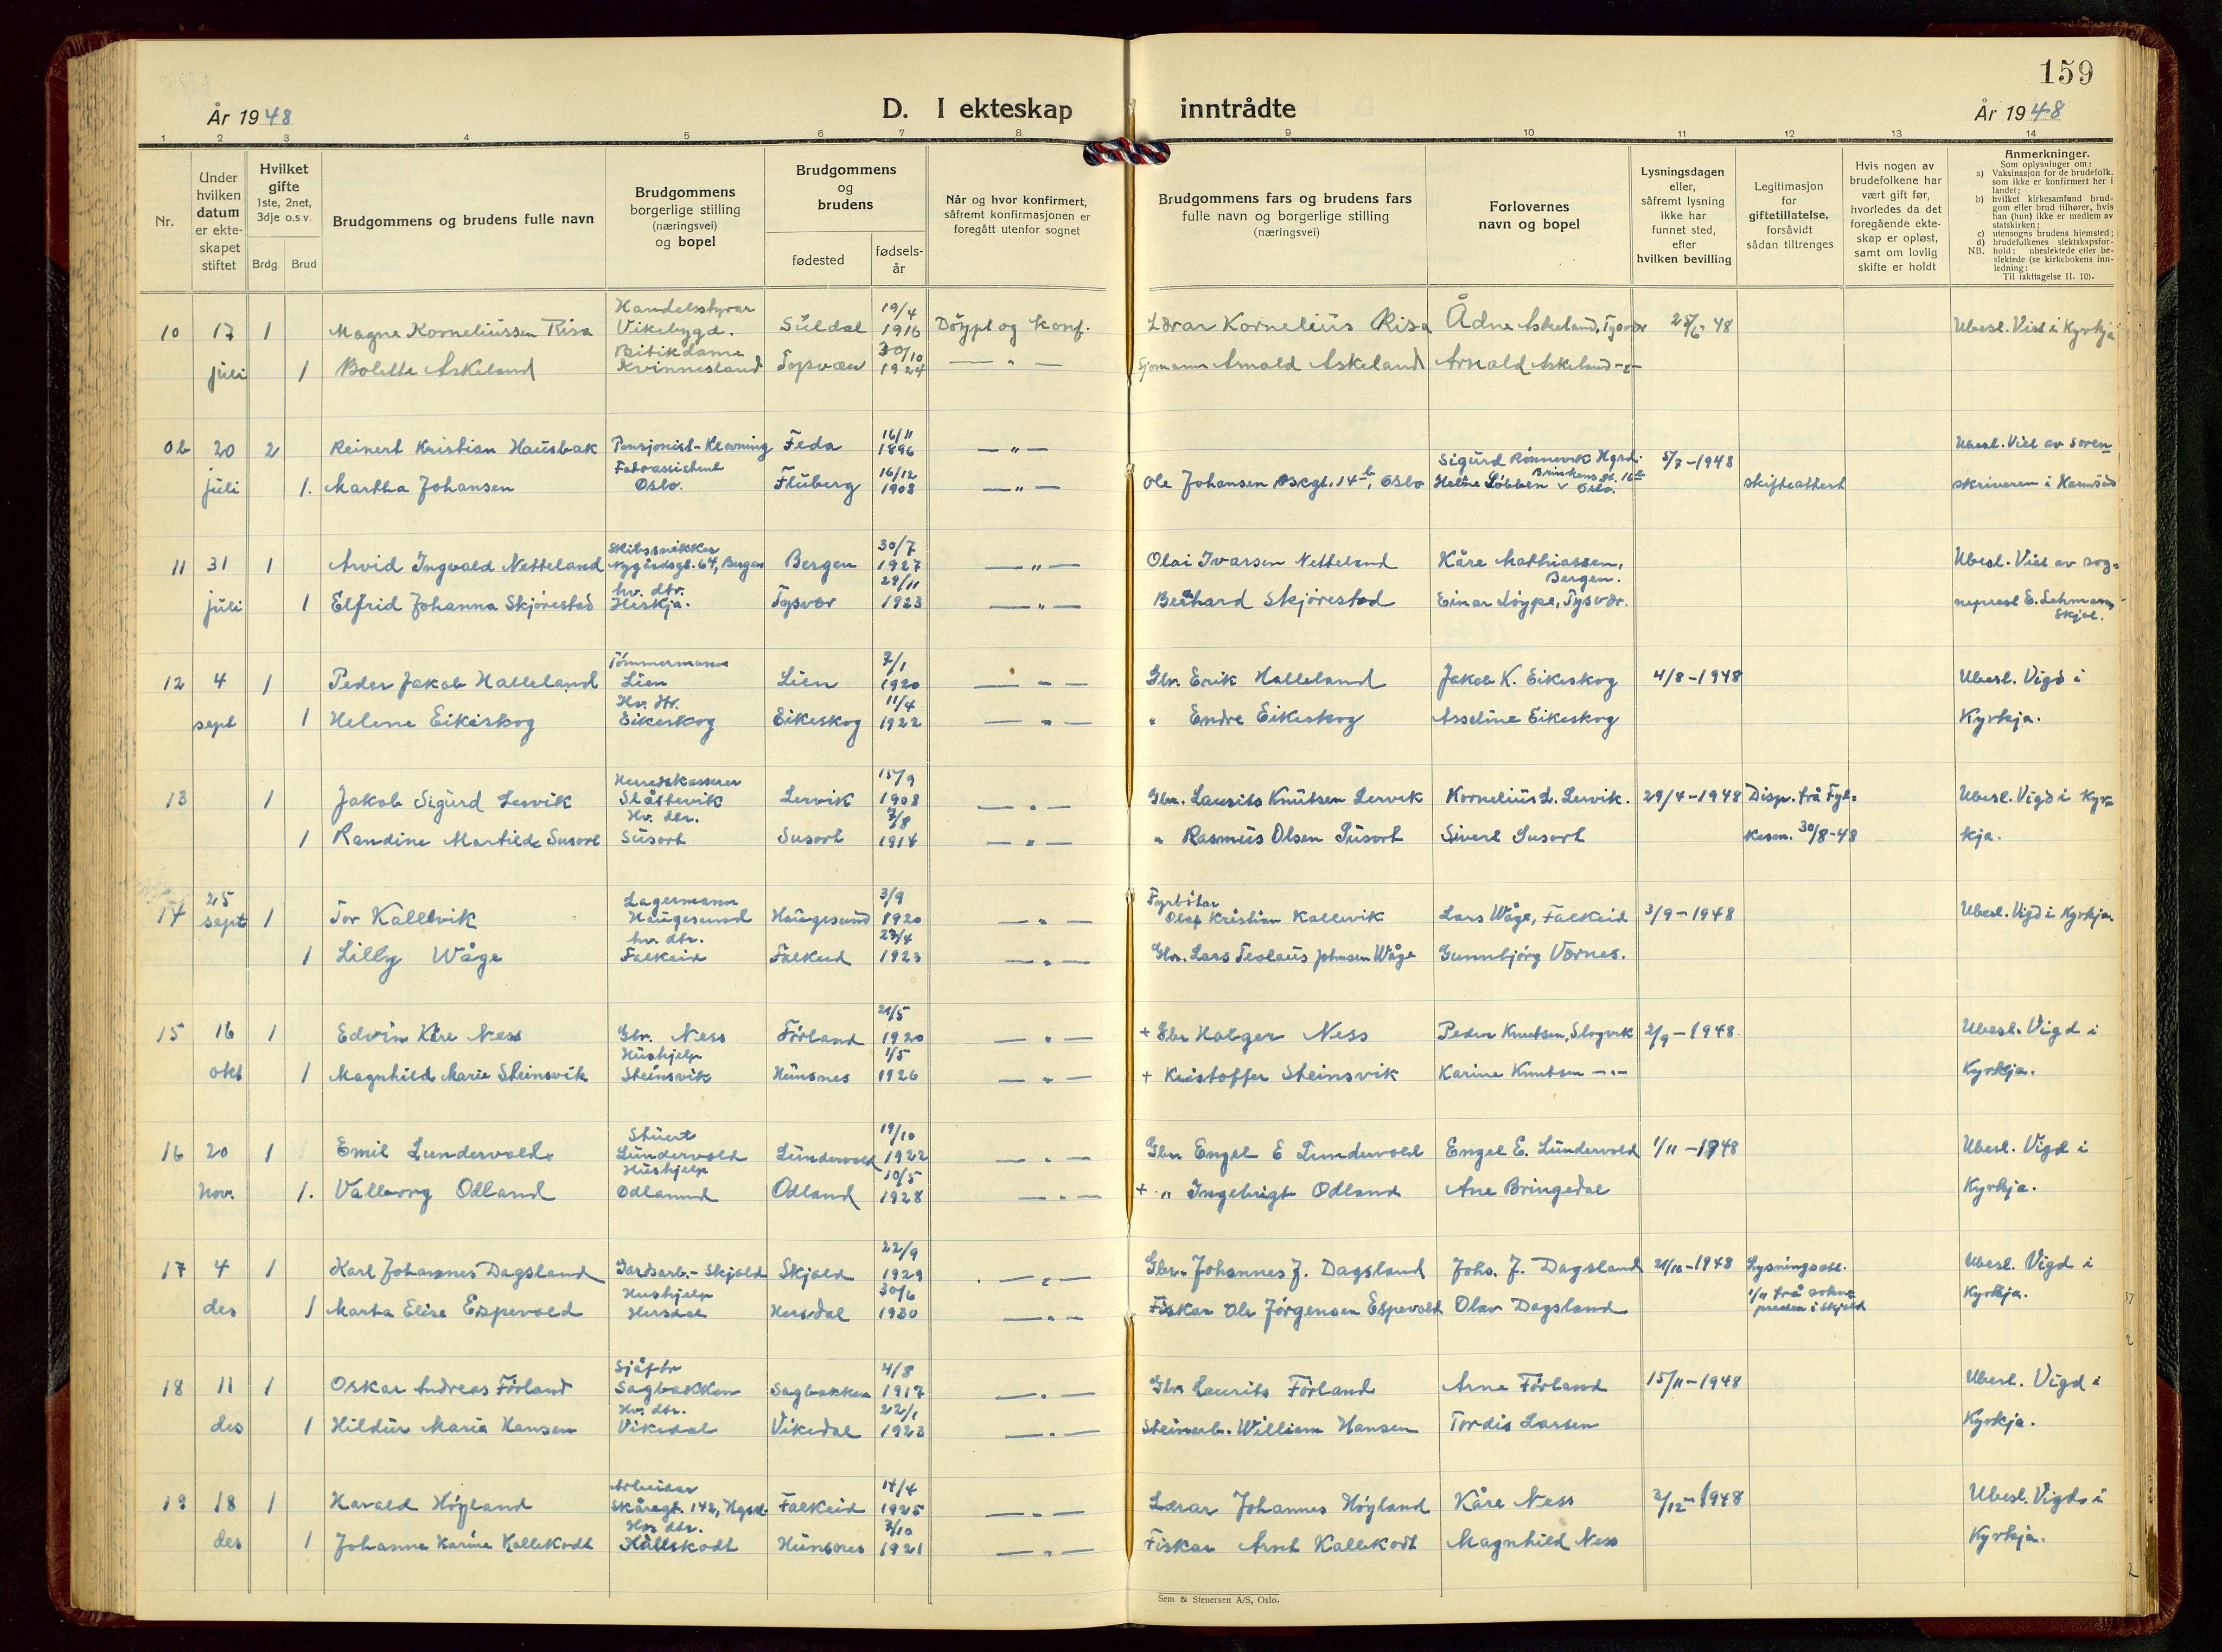 159
År 1948
D. I ekteskap inntrådte
År 1948
1 2 3 4 5 6 7 8 9 10 11 12 13 14
Nr.
Under hvilken datum er ekte-skapet stiftet
Hvilket gifte 1ste, 2net, 3dje o.s.v.
Brdg. Brud
Brudgommens og brudens fulle navn
Brudgommens borgerlige stilling (næringsvei) og bopel
Brudgommens og brudens
fødested
fødsels-år
Når og hvor konfirmert, såfremt konfirmasjonen er foregått utenfor sognet
Brudgommens fars og brudens fars fulle navn og borgerlige stilling (næringsvei)
Forlovernes navn og bopel
Lysningsdagen eller, såfremt lysning ikke har funnet sted, efter hvilken bevilling
Legitimasjon for giftetillatelse, forsåvidt sådan tiltrenges
Hvis nogen av brudefolkene har vært gift før, hvorledes da det foregående ekte-skap er opløst, samt om lovlig skifte er holdt
Anmerkninger.
Som oplysninger om:
a) Vaksinasjon for de brudefolk, som ikke er konfirmert her i landet;
b) hvilket kirkesamfund brud-gom eller brud tilhører, hvis han (hun) ikke er medlem av statskirken;
c) utensogns brudens hjemsted;
d) brudefolkenes slektskapsfor-hold: ubeslektede eller be-slektede (se kirkebokens inn-ledning:
NB. Til iakttagelse II. 10).
10 17 1 Magne Korneliussen Risa Handelsstyrar Vikebygd. Suldal 19/4 1916 Döypt og konf. Lærar Kornelius Risa Ådne Askeland, Tysvær 25/6 48 Ubesl. Viet i Kyrkja
juli 1 Bolette Askeland Butikdame Kvinnesland Tysvær 30/10 1924 — " — Sjømann Arnold Askeland Arnold Askeland -"-
Ob 20 2 Reinert Kristian Hausbak Pensjonist- Feda 16/11 1896 — " — Sigurd Rønnevik Hgsd. 5/7-1948 Ubesl. Viet av soren=
juli 1. Martha Johansen Oslo. Fluberg 16/12 1908 — " — Ole Johansen 14 b, Oslo Helene 16 Oslo. skifteattest skriveren i Karmsund
11 31 1 Arvid Ingvald Netteland Nygårdsgt. 64, Bergen Bergen 30/7 1927 — " — Olai Ivarsen Netteland Kåre Mathiassen, Bergen. Ubesl. Viet av sog=
juli 1 Elfrid Johanna Skjørestad hv. dtr. Heskja. Tysvær 29/11 1923 — " — Berhard Skjørestad Einar Løype, Tysvær. neprest E. Lehmann, Skjol.
12 4 1 Peder Jakob Halleland Tömmermann Lien Lien 7/1 1920 — " — Gbr. Erik Halleland Jakob K. Eikeskog 4/8-1948 Ubesl. Vigd i
sept 1 Helene Eikeskog Hv. dtr. Eikeskog Eikeskog 11/4 1922 — " — " Endre Eikeskog Asseline Eikeskog Kyrkja.
13 1 Jakob Sigurd Lervik Herredskasserer Slåttevik Lervik 15/9 1908 — " — Gbr. Laurits Knutsen Lervik Kornelius L. Lervik. 29/4-1948 Disp. frå Fyl= Ubesl. Vigd i Kyr=
1 Randine Martilde Susort Hv. dtr. Susort Susort 7/8 1914 — " — " Rasmus Olsen Susort Sivert Susort kesm. 30/8-48 kja.
14 25 sept 1 Tor Kallevik Lagermann Haugesund Haugesund 3/9 1920 — " — Fyrbötar Olaf Kristian Kallevik Lars Wåge, Falkeid 3/9-1948 Ubesl. Vigd i Kyrkja.
1 Lilly Wåge hv. dtr. Falkeid Falkeid 23/4 1923 — " — Gbr. Lars Johnsen Wåge Gunnbjörg Værnes.
15 16 1 Edvin Kåre Ness Gbr. Ness Förland 21/5 1920 — " — + Gbr Holger Ness Peder Knutsen, Slogvik 2/9-1948 Ubesl. Vigd i
okt 1 Magnhild Marie Steinsvik Hushjelp Steinsvik Hunsnes 1/5 1926 — " — + Kristoffer Steinsvik Karine Knutsen -"- Kyrkja.
16 20 1 Emil Lundervold Stuert Lundervold Lundervold 19/10 1922 — " — Gbr Engel E Lundervold Engel E. Lundervold 1/11-1948 Ubesl. Vigd i
Nov. 1. Valborg Odland Hushjelp Odland Odland 10/5 1928 — " — + " Ingebrigt Odland Ane Bringedal Kyrkja.
17 4 1 Karl Johannes Dagsland Gardsarb.- Skjold Skjold 22/9 1929 — " — Gbr. Johannes J. Dagsland Johs. J. Dagsland 21/10-1948 Lysningsatt. Ubesl. Vigd i
des 1 Marta Elise Espevold Hushjelp Hersdal Hersdal 30/6 1930 — " — Fiskar Ole Jörgensen Espevold Olav Dagsland 1/11 frå sokne presten i Skjold Kyrkja.
18 11 1 Oskar Andreas Förland Sagbakken Sagbakken 4/8 1917 — " — Gbr Laurits Förland Arne Förland 15/11-1948 Ubesl. Vigd i
des 1 Hildur Maria Hansen Hv. dtr. Vikedal Vikedal 22/1 1923 — " — Steinarb. William Hansen Tordis Larsen Kyrkja.
19 18 1 Harald Höyland Arbeidar Skåregt. 142, Hgsd. Falkeid 14/4 1925 — " — Lærar Johannes Höyland Kåre Ness 2/12-1948 Ubesl. Vigd i
des 1 Johanne Karine Kallekodt Hv. dtr. Kallekodt Hunsnes 7/10 1921 — " — Fiskar Arnt Kallekodt Magnhild Ness Kyrkja.
Sem & Stenersen A/S, Oslo.